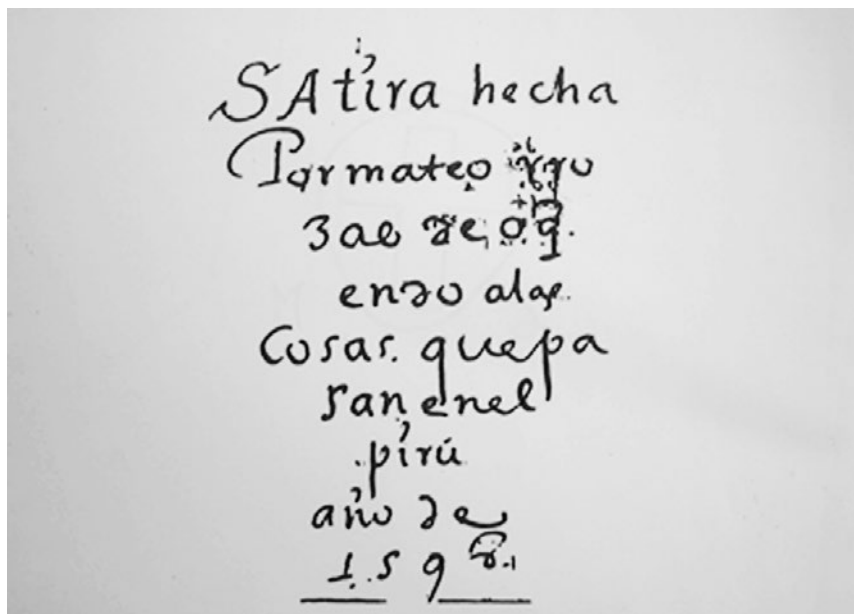 SAtira hecha
Por mateo rro
sas de oq̃.
endo alas
Cosas. quepa
san enel
pirú
año de
1598.